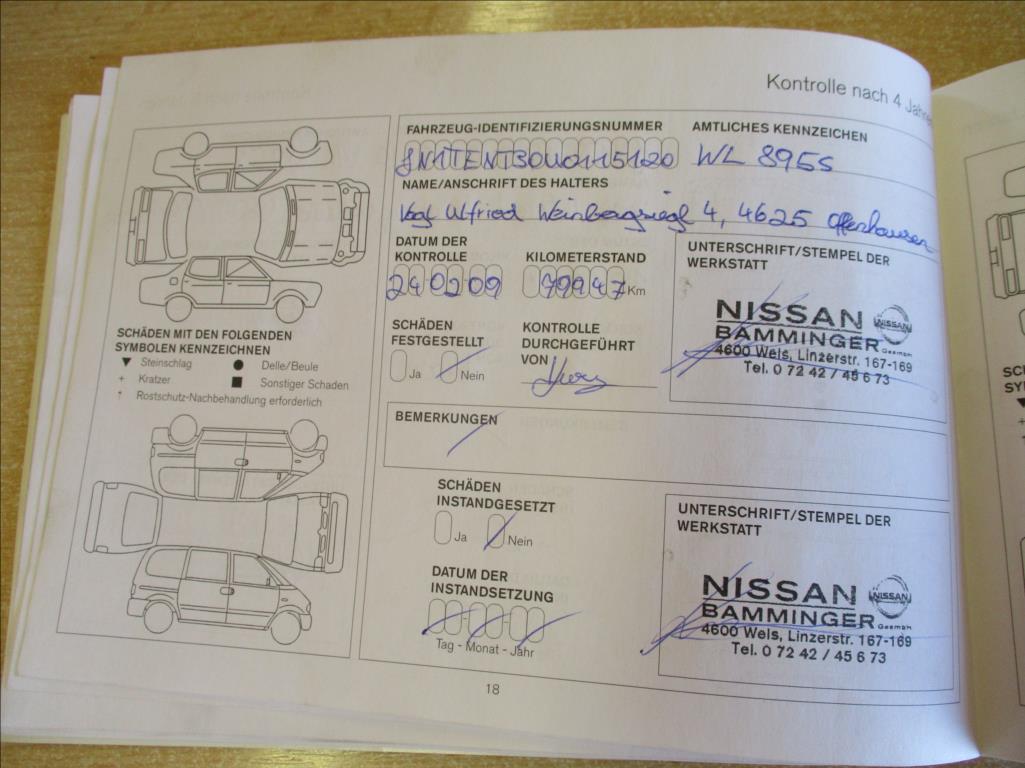 Kontrolle nach 4 Jahre
FAHRZEUG-IDENTIFIZIERUNGSNUMMER
JN1TENT30U0115120
AMTLICHES KENNZEICHEN
WL 895S
NAME/ANSCHRIFT DES HALTERS
Weinbergsiegl 4, 4625 Offenhausen
DATUM DER
KONTROLLE
240209
KILOMETERSTAND
79947 Km
UNTERSCHRIFT/STEMPEL DER
WERKSTATT
NISSAN
BAMMINGER GesmbH
4600 Wels, Linzerstr. 167-169
Tel. 0 72 42 / 45 6 73
NISSAN
SCHÄDEN
FESTGESTELLT
Ja Nein
KONTROLLE
DURCHGEFÜHRT
VON
SCHÄDEN MIT DEN FOLGENDEN
SYMBOLEN KENNZEICHNEN
▼ Steinschlag
● Delle/Beule
+ Kratzer
■ Sonstiger Schaden
† Rostschutz-Nachbehandlung erforderlich
BEMERKUNGEN
SCHÄDEN
INSTANDGESETZT
Ja Nein
DATUM DER
INSTANDSETZUNG
Tag - Monat - Jahr
UNTERSCHRIFT/STEMPEL DER
WERKSTATT
NISSAN
BAMMINGER GesmbH
4600 Wels, Linzerstr. 167-169
Tel. 0 72 42 / 45 6 73
NISSAN
18